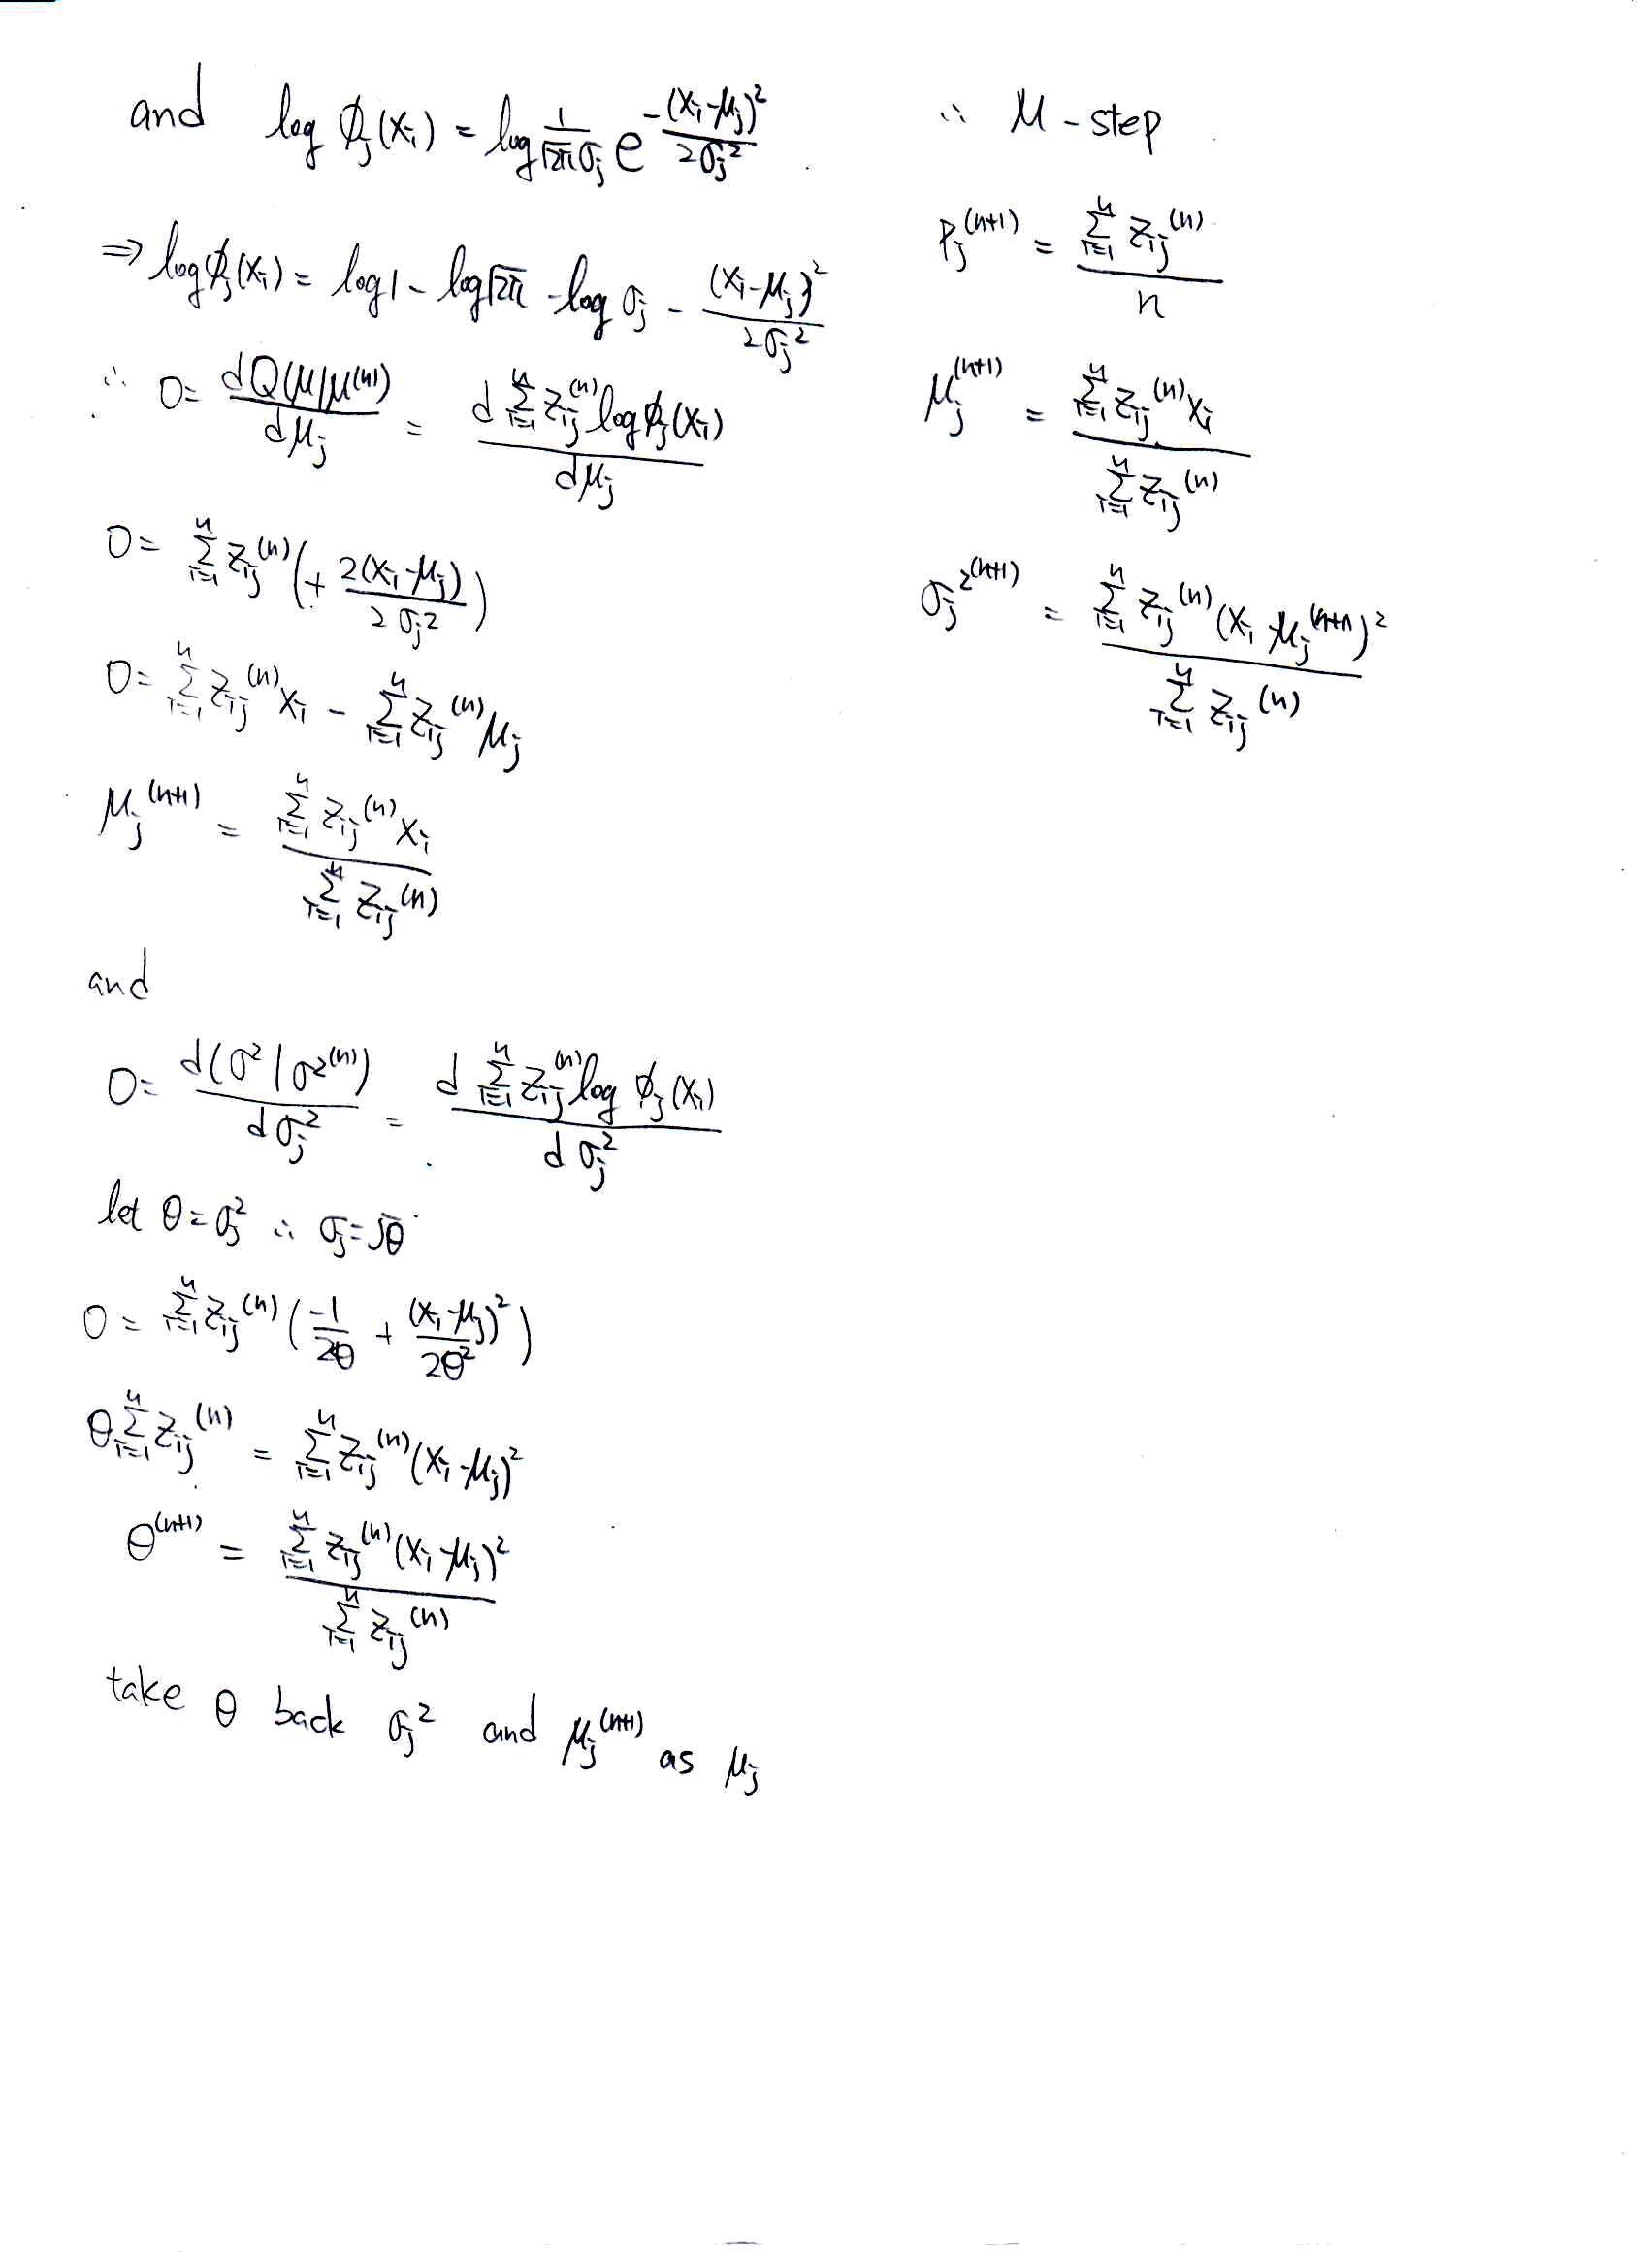 and log ϕ_j(x_i) = log \frac{1}{\sqrt{2π}σ_j} e^{-\frac{(x_i-μ_j)^2}{2σ_j^2}}
⇒ log ϕ_j(x_i) = log 1 - log \sqrt{2π} - log σ_j - \frac{(x_i-μ_j)^2}{2σ_j^2}
∴ 0 = \frac{dQ(μ|μ^{(n)})}{dμ_j} = \frac{d \sum_{i=1}^n z_{ij}^{(n)} log ϕ_j(x_i)}{dμ_j}
0 = \sum_{i=1}^n z_{ij}^{(n)} (+ \frac{2(x_i-μ_j)}{2σ_j^2})
0 = \sum_{i=1}^n z_{ij}^{(n)} x_i - \sum_{i=1}^n z_{ij}^{(n)} μ_j
μ_j^{(n+1)} = \frac{\sum_{i=1}^n z_{ij}^{(n)} x_i}{\sum_{i=1}^n z_{ij}^{(n)}}
and
0 = \frac{d(σ^2|σ^{2(n)})}{dσ_j^2} = \frac{d \sum_{i=1}^n z_{ij}^{(n)} log ϕ_j(x_i)}{dσ_j^2}
let θ = σ_j^2 ∴ σ_j = \sqrt{θ}
0 = \sum_{i=1}^n z_{ij}^{(n)} (\frac{-1}{2θ} + \frac{(x_i-μ_j)^2}{2θ^2})
θ \sum_{i=1}^n z_{ij}^{(n)} = \sum_{i=1}^n z_{ij}^{(n)} (x_i-μ_j)^2
θ^{(n+1)} = \frac{\sum_{i=1}^n z_{ij}^{(n)} (x_i-μ_j)^2}{\sum_{i=1}^n z_{ij}^{(n)}}
take θ back σ_j^2 and μ_j^{(n+1)} as μ_j
∴ M-step
P_j^{(n+1)} = \frac{\sum_{i=1}^n z_{ij}^{(n)}}{n}
μ_j^{(n+1)} = \frac{\sum_{i=1}^n z_{ij}^{(n)} x_i}{\sum_{i=1}^n z_{ij}^{(n)}}
σ_j^{2(n+1)} = \frac{\sum_{i=1}^n z_{ij}^{(n)} (x_i-μ_j^{(n+1)})^2}{\sum_{i=1}^n z_{ij}^{(n)}}